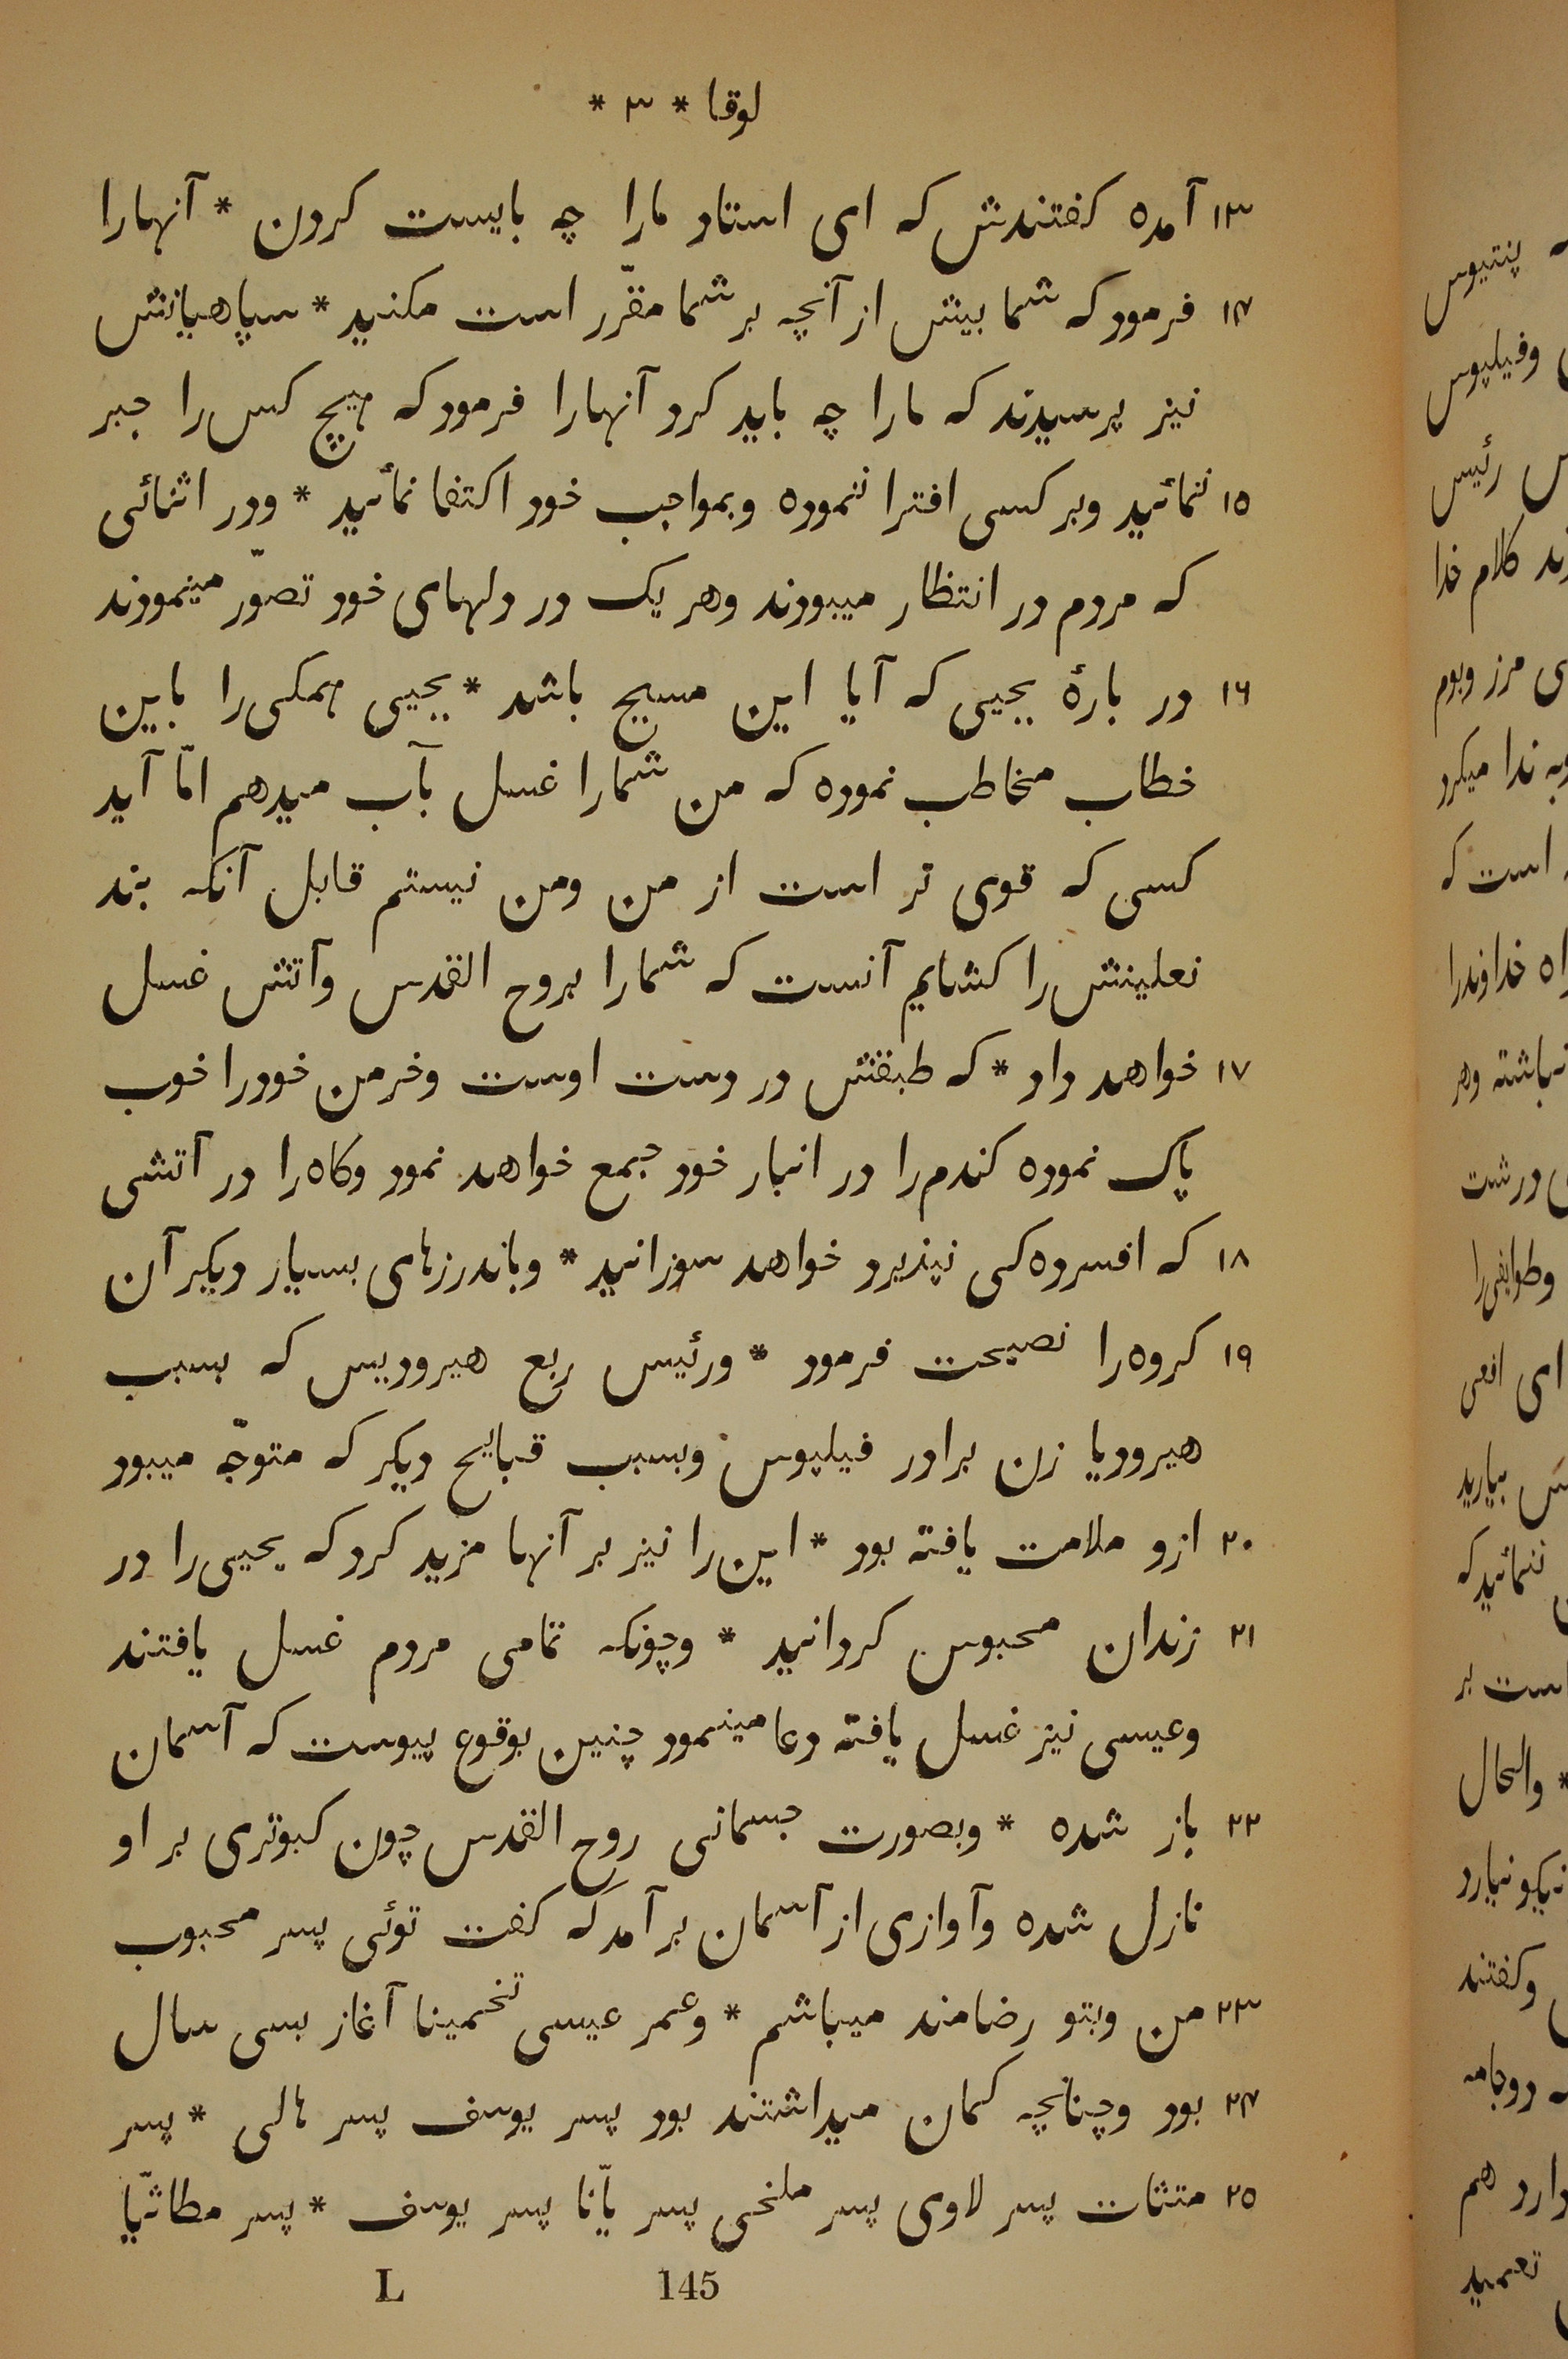 لوقا * ٣ *
١٣ آمده كفتندش كه اى استاد مارا چه بايست كردن * آنهارا
١٤ فرمود كه شما بيش از آنچه بر شما مقرّر است مكنيد * سپاهيانش
نيز پرسيدند كه مارا چه بايد كرد آنهارا فرمود كه هيچ كس را جبر
١٥ ننمائيد وبر كسى افترا ننموده وبمواجب خود اكتفا نمائيد * ودر اثنائى
كه مردم در انتظار ميبودند وهر يک در دلهاى خود تصوّر مينمودند
١٦ در بارۀ يحيى كه آيا اين مسيح باشد * يحيى همكى را باين
خطاب مخاطب نموده كه من شمارا غسل بآب ميدهم امّا آيد
كسى كه قوى تر است از من ومن نيستم قابل آنكه بند
نعلينش را كشايم آنست كه شمارا بروح القدس وآتش غسل
١٧ خواهد داد * كه طبقش در دست اوست وخرمن خودرا خوب
پاک نموده كندم را در انبار خود جمع خواهد نمود وكاه را در آتشى
١٨ كه افسرده كى نپذيرد خواهد سوزانيد * وباندرزهاى بسيار ديكر آن
١٩ كروه را نصيحت فرمود * ورئيس ربع هيروديس كه بسبب
هيروديا زن برادر فيليپوس وبسبب قبايح ديكر كه متوجّه ميبود
٢٠ ازو ملامت يافته بود * اين را نيز بر آنها مزيد كرد كه يحيى را در
٢١ زندان محبوس كردانيد * وچونكه تمامى مردم غسل يافتند
وعيسى نيز غسل يافته دعا مينمود چنين بوقوع پيوست كه آسمان
٢٢ باز شده * وبصورت جسمانى روح القدس چون كبوترى بر او
نازل شده وآوازى از آسمان بر آمد كه كفت توئى پسر محبوب
٢٣ من وبتو رضامند ميباشم * وعمر عيسى تخمينا آغاز بسى سال
٢٤ بود وچنانچه كمان ميداشتند بود پسر يوسف پسر هالى * پسر
٢٥ متثات پسر لاوى پسر ملخى پسر يانّا پسر يوسف * پسر مطاثيّا
145 L
پنتيوس
وفيليپوس
رئيس
كلام خدا
مرز وبوم
ندا ميكرد
است كه
خداوندرا
نباشته وهر
درشت
وطوايفى را
اى افعى
بياريد
ننمائيد كه
است بر
* والحال
نيكو نيارد
وكفتند
دو جامه
دارد هم
تعميد